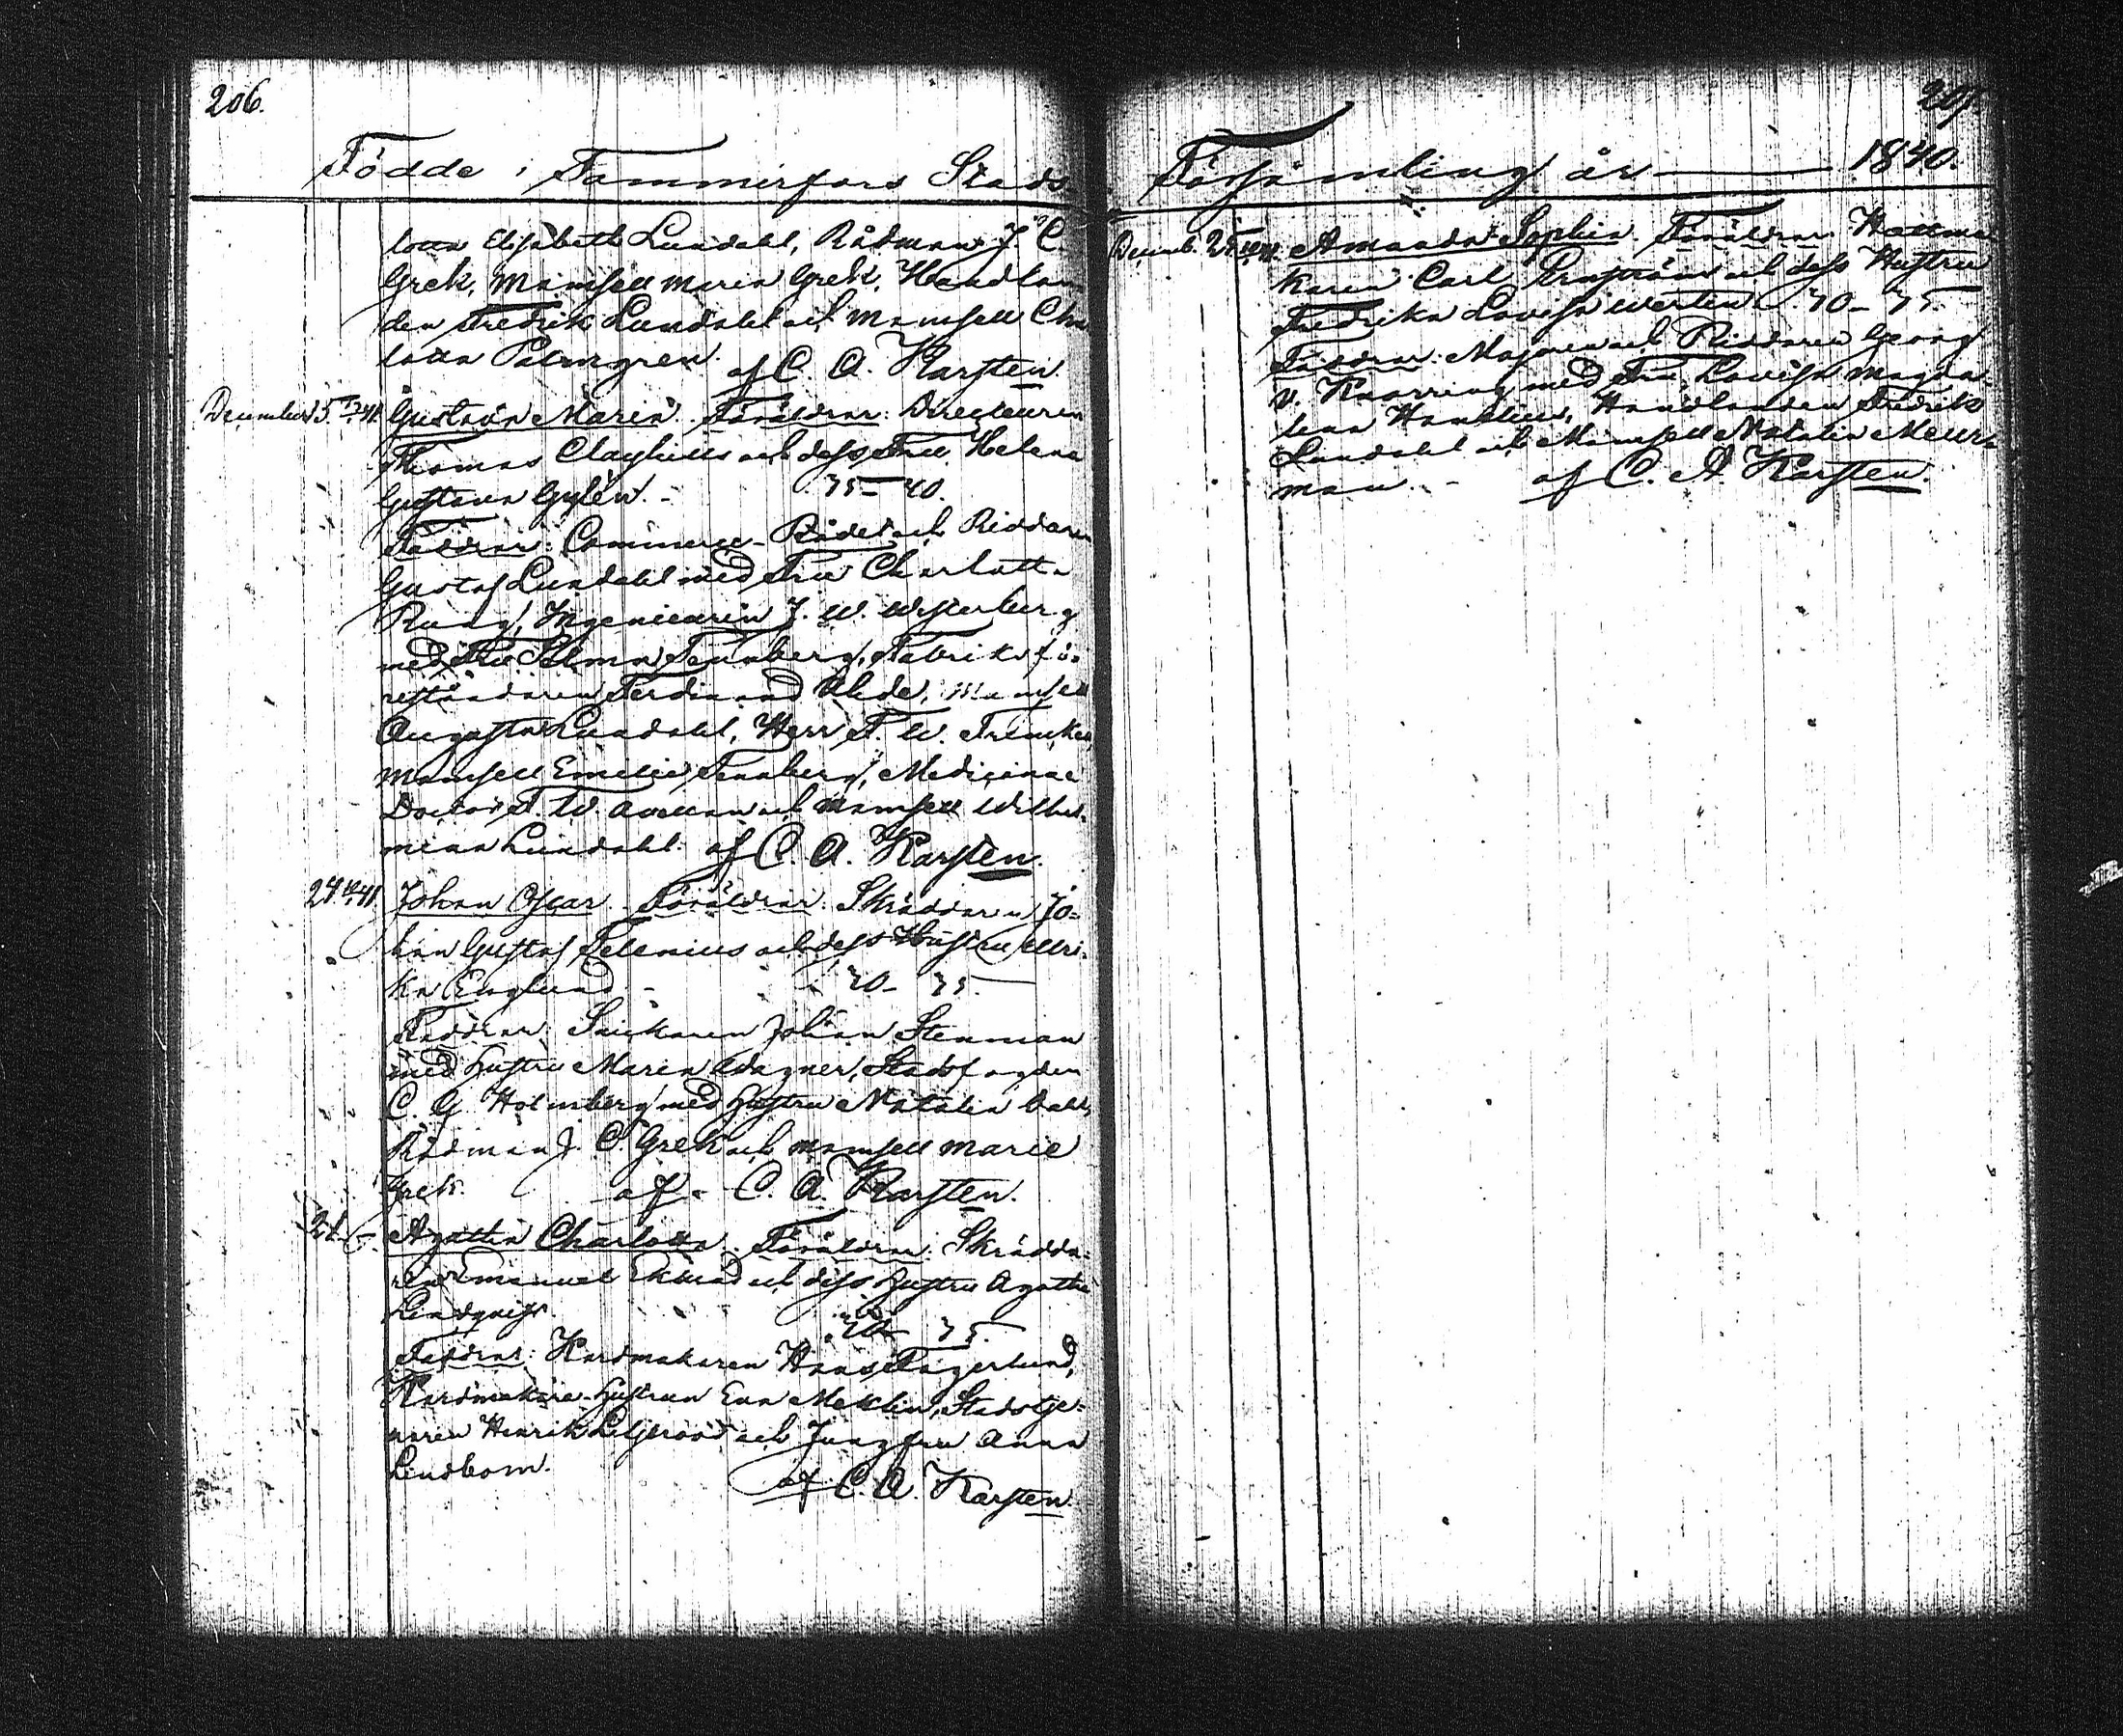 206.
Födde i Tammerfors Stads
lotta Elisabeth Lundahl, Rådman J. C.
Grek, Mamsell Maria Grek, Handlan
den Fredrik Lundahl och Mamsell Cha
lotta Palmgren. af C. A. Karsten.
December 15. Gustava Maria. Föräldrar: Directeuren
Thomas Clayhills och dess Fru Helena
Gustava Gylén. - 35-40.
Faddrar: Commerce-Rådet och Riddaren
Gustaf Lundahl med Fru Charlotta
Ring, Ingenieuren J. W. Westerberg
med Fru Selma Tennberg, Fabriksfö-
reståndaren Ferdinand Uhde, Mamsell
Augusta Lundahl, Herr F. W.
Mamsell Emelie Tennberg, Medicinae
Doctor F. W. Avellan och Mamsell Wilhel-
mina Lundahl. af C. A. Karsten.
Johan Oscar. Föräldrar: Skräddaren Jo-
han Gustaf Selenius och dess Hustru Ulri-
ka Englund - 30-35.
Faddrar: Snickaren Johan Stenman
med Hustru Maria Wagner, Stadsfogden
C. G. Holmberg med Hustru Natalia
Rådman J. C. Grek och Mamsell Marie
Grek. af C. A. Karsten.
Agatha Charlotta. Föräldrar: Skrädda-
ren Emanuel Eklund och dess Hustru Agatha
Lindqvist.
35.
Faddrar: Kardmakaren Hans Fagerlund,
Kardmakare-Hustrun Eva Meklin, Stadstje-
naren Henrik Liljeroos och Jungfru Anna
Lindbom.
af C. A. Karsten.
207.
Församling år 1840.
Decemb. Amanda Sophia. Föräldrar: Hattma
karen Carl Enström och dess Hustru
Fredrika Lovisa Wertén 30-35.
Faddrar: Majoren och Riddaren Georg
v. Knorring med Fru Lovisa Magda-
lena Handlanden Fredrik
Lundahl och Mamsell Natalia Meur-
man. - af C. A. Karsten.